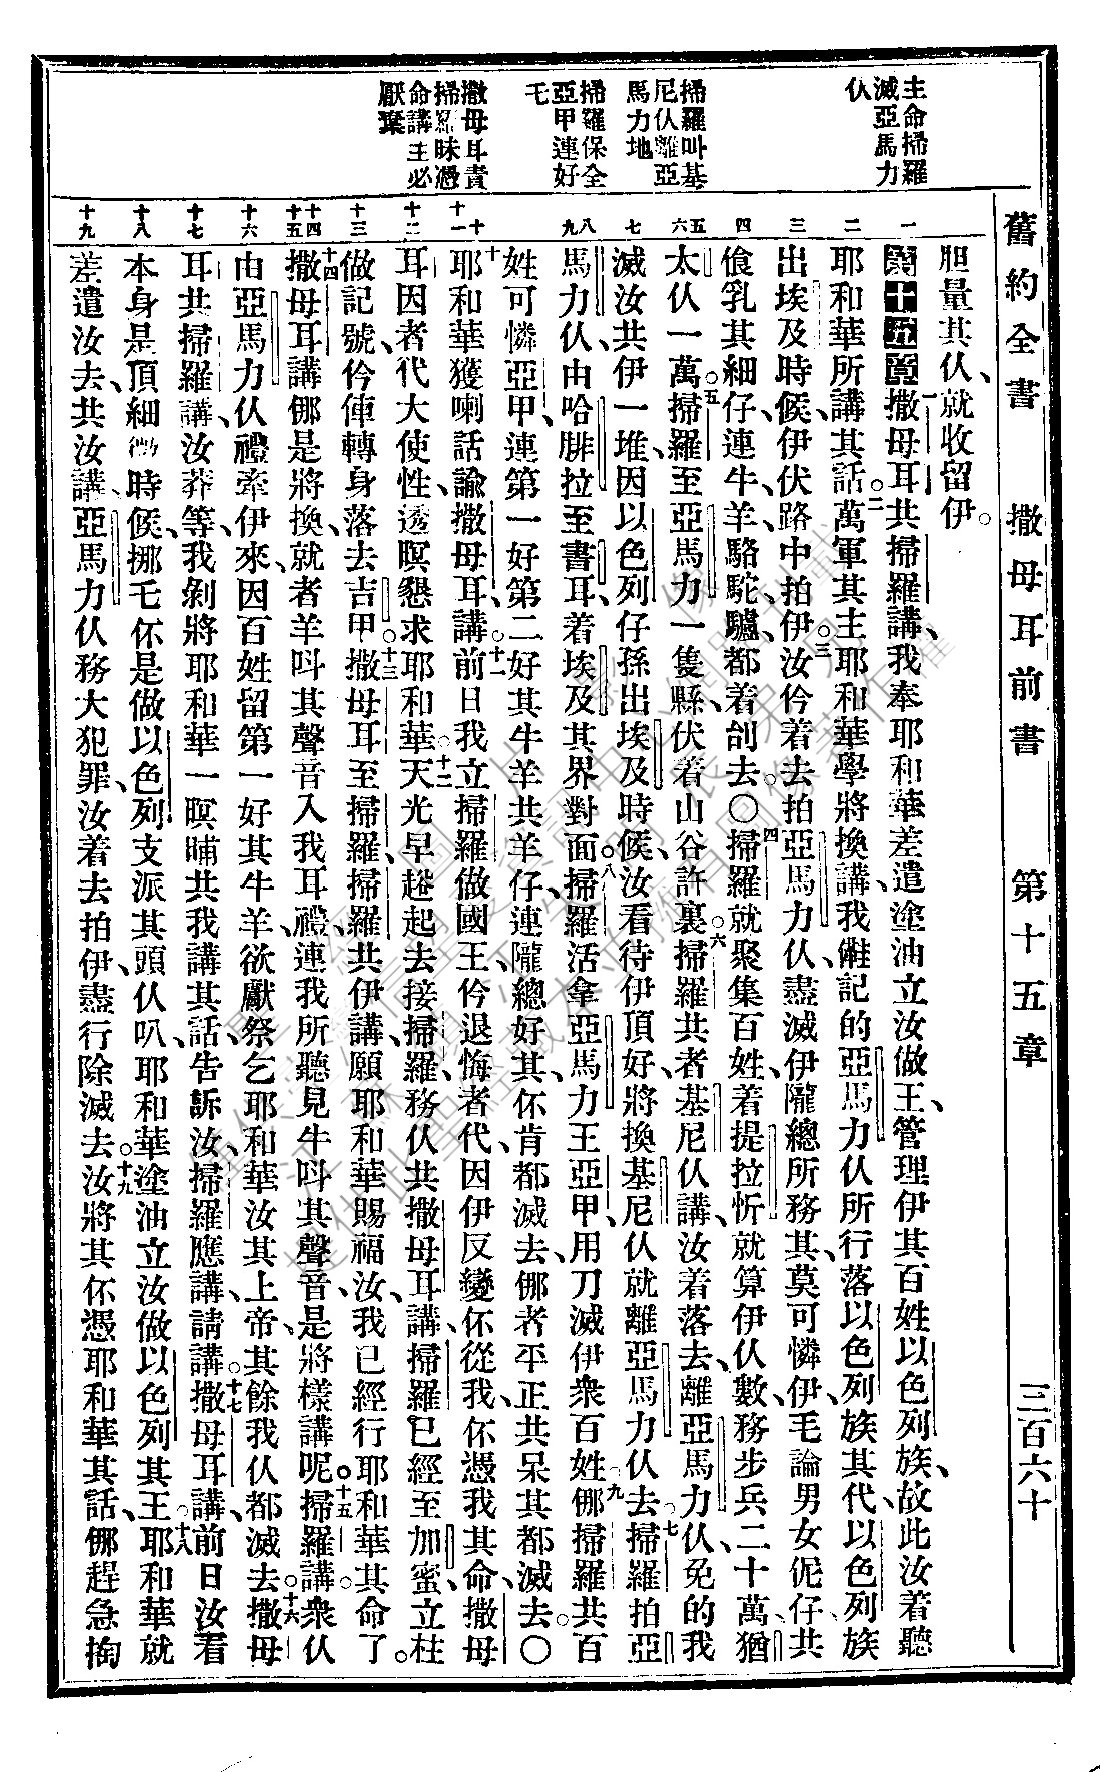 舊約全書 撒母耳前書 第十五章 三百六十
主命掃羅
滅亞馬力
仈
掃羅叫基
尼仈離亞
馬力地
掃羅保全
亞甲連好
乇
撒母耳責
掃羅昧憑
命講主必
厭棄
一 二 三 四 五 六 七 八 九 十 十一 十二 十三 十四 十五 十六 十七 十八 十九
胆量其仈、就收留伊。
第十五章 一撒母耳共掃羅講、我奉耶和華差遣塗油立汝做王、管理伊其百姓以色列族、故此汝着聽
耶和華所講其話。二萬軍其主耶和華學將換講、我儺記的亞馬力仈所行落以色列族其代、以色列族
出埃及時候、伊伏路中拍伊。三汝仱着去拍亞馬力仈、盡滅伊隴總所務其、莫可憐伊、毛論男女伲仔、共
食乳其細仔、連牛、羊、駱駝、驢、都着刣去。〇四掃羅就聚集百姓、着提拉忻就算伊仈數、務步兵二十萬、猶
太仈一萬。五掃羅至亞馬力一隻縣、伏着山谷許裏。六掃羅共者基尼仈講、汝着落去、離亞馬力仈、免的我
滅汝共伊一堆、因以色列仔孫出埃及時候、汝看待伊頂好、將換基尼仈就離亞馬力仈去。七掃羅拍亞
馬力仈、由哈腓拉至書耳、着埃及其界對面。八掃羅活拿亞馬力王亞甲、用刀滅伊衆百姓。九倻掃羅共百
姓可憐亞甲、連第一好第二好其牛羊共羊仔、連隴總好其、伓肯都滅去、倻者平正共呆其都滅去。〇
十耶和華獲喇話諭撒母耳、講。十一前日我立掃羅做國王、仱退悔者代、因伊反變伓從我、伓憑我其命、撒母
耳因者代大使性、透暝懇求耶和華。十二天光早趒起去接掃羅、務仈共撒母耳講、掃羅已經至加蜜、立柱
做記號、仱俥轉身落去吉甲。十三撒母耳至掃羅、掃羅共伊講、願耶和華賜福汝、我已經行耶和華其命了。
十四撒母耳講、倻是將換、就者羊呌其聲音入我耳禮、連我所聽見牛呌其聲音、是將樣講呢。十五掃羅講、衆仈
由亞馬力仈禮牽伊來、因百姓留第一好其牛羊、欲獻祭乞耶和華汝其上帝、其餘我仈都滅去。十六撒母
耳共掃羅講、汝莽等、我剝將耶和華一暝晡共我講其話、告訴汝、掃羅應講、請講。十七撒母耳講、前日汝看
本身是頂細微時候、挪乇伓是做以色列支派其頭仈叭、耶和華塗油立汝做以色列其王。十八耶和華就
差遣汝去、共汝講、亞馬力仈務大犯罪、汝着去拍伊、盡行除滅去。十九汝將其伓憑耶和華其話、倻趕急掏